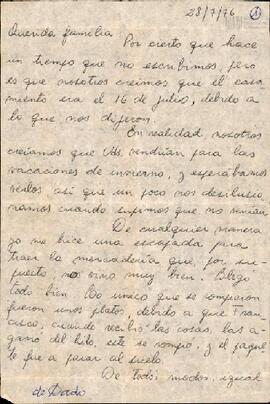 28/7/76 1
Querida familia
Por cierto que hace
un tiempo que no escribimos, pero
es que nosotros creimos que el casa
miento era el 16 de julio, debido a
lo que nos dijeron.
En realidad nosotros
creíamos que Uds. vendrían para las
vacaciones de invierno, y esperábamos
verlos así que un poco nos desilusio
namos cuando supimos que no venían
De cualquier manera
yo me hice una escapada para
traer la mercadería que, por su
puesto, no vino muy bien. Llegó
todo bien. Lo único que se rompieron
fueron unos platos, debido a que Fran
cisco, cuando recibió las cosas, las a
garró del hilo, este se rompió, y el paque
te fue a parar al suelo.
De todos modos, igual
de Dardo